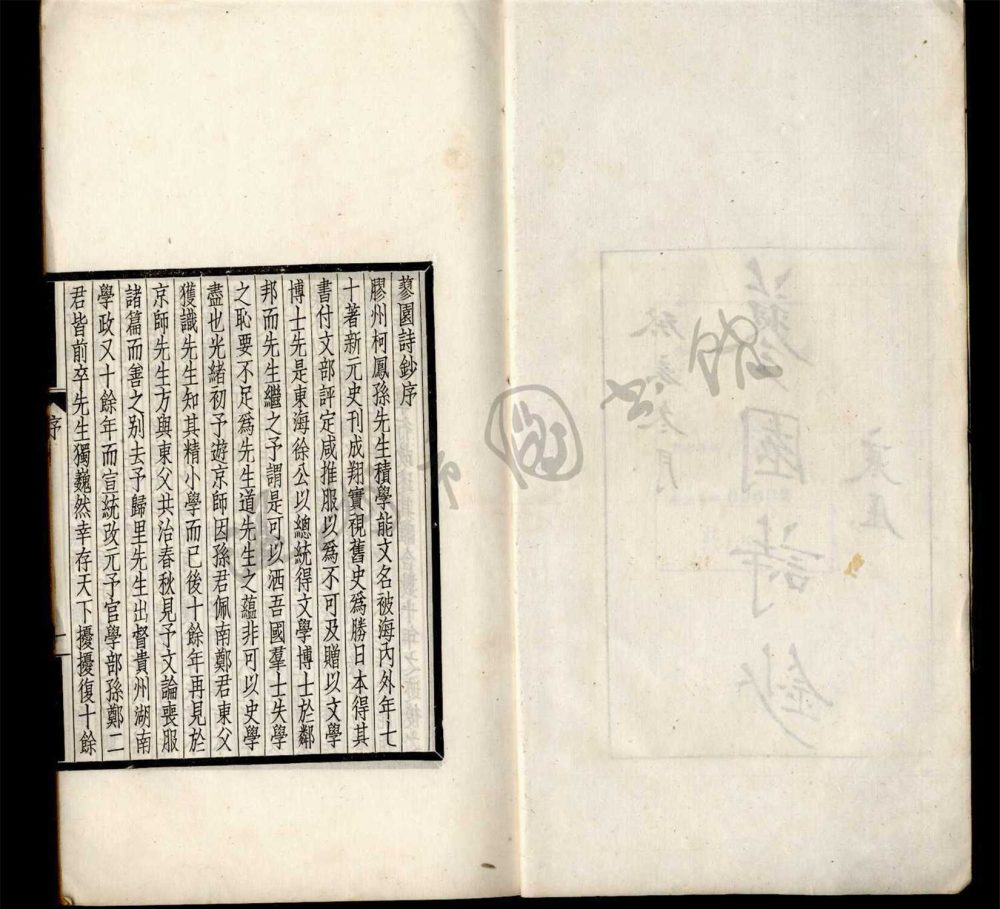 蓼園詩鈔序
膠州柯鳳孫先生積學能文名被海內外年七
十著新元史刊成翔實視舊史爲勝日本得其
書付文部評定咸推服以爲不可及贈以文學
博士先是東海徐公以總統得文學博士於鄰
邦而先生繼之予謂是可以洒吾國羣士失學
之恥要不足爲先生道先生之蘊非可以史學
盡也光緒初予遊京師因孫君佩南鄭君東父
獲識先生知其精小學而已後十餘年再見於
京師先生方與東父共治春秋見予文論喪服
諸篇而善之別去予歸里先生出督貴州湖南
學政又十餘年而宣統改元予官學部孫鄭二
君皆前卒先生獨巍然幸存天下擾擾復十餘
序
一
蓼園詩鈔